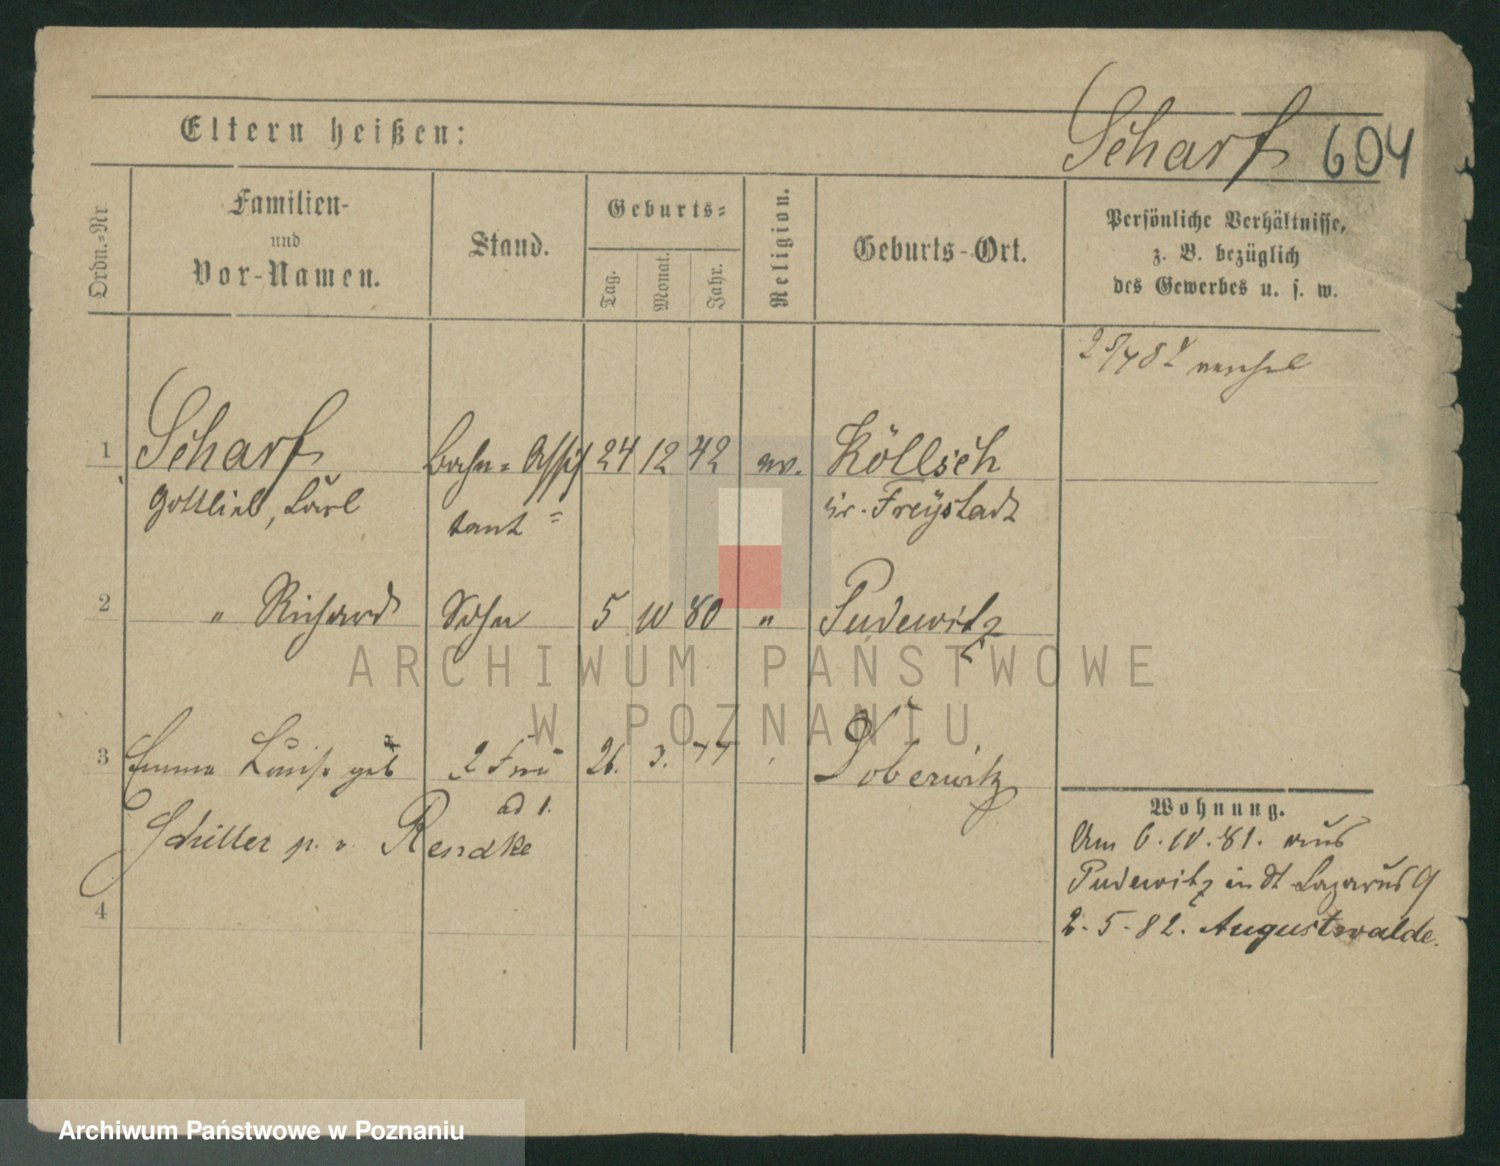 Eltern heißen:
Scharf 604
Ordn.-Nr
Familien-
und
Vor-Namen.
Stand.
Geburts-
Tag.
Monat.
Jahr.
Religion.
Geburts-Ort.
Persönliche Verhältnisse,
z. B. bezüglich
des Gewerbes u. s. w.
1 Scharf Bahn-Assis 24 12 42 ev. Köllsch
Gottlieb, Carl tant Kr. Freystadt
2 " Richard Sohn 5 10 80 " Pudewitz
ARCHIWUM PAŃSTWOWE
W POZNANIU
3 Emma Louise geb 2 Frau 26. 3. 44
ad 1.
Schiller Rendke
4
Wohnung.
Am 6.10.81. aus
Pudewitz in St Lazarus 9
2-5-82. Augustwalde.
Archiwum Państwowe w Poznaniu